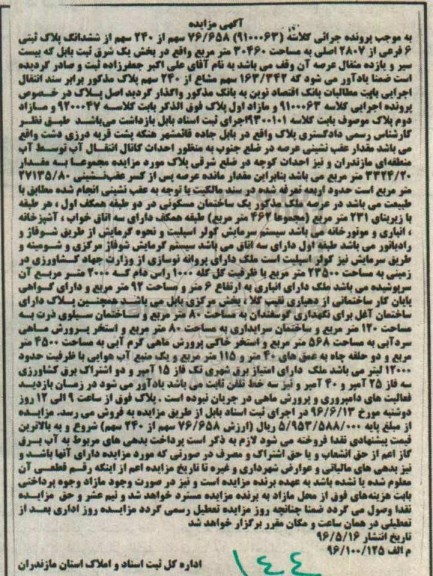 آگهی مزایده
به موجب پرونده جرائی کلاسه (9100063) 76/658 سهم از 240 سهم از ششدانگ پلاک ثبتی
6 فرعی از 2807 اصلی به مساحت 30460 متر مربع واقع در بخش یک شرق ثبت بابل که بیست
سیر و یازده مثقال عرصه آن وقف می باشد به نام آقای علی اکبر جعفرزاده ثبت و صادر گردیده
است ضمنا یادآور می شود که 163/342 سهم مشاع از 240 سهم پلاک مذکور برابر سند انتقال
اجرایی بابت مطالبات بانک اقتصاد نوین به بانک مذکور واگذار گردید اصل پلاک در خصوص
پرونده اجرایی کلاسه 9100063 و مازاد اول پلاک فوق الذکر بابت کلاسه 9200047 و مازاد
دوم پلاک موصوف بابت کلاسه 9300101 اجرای ثبت اسناد بابل بازداشت می‌باشد. طبق نظر
کارشناس رسمی دادگستری پلاک واقع در بابل جاده قائمشهر هتکه پشت قریه درزی دشت واقع
می باشد مقدار عقب نشینی عرصه در ضلع جنوب به منظور احداث کانال انتقال آب توسط آب
منطقه‌ای مازندران و نیز احداث کوچه در ضلع شرقی پلاک مورد مزایده مجموعا به مقدار
3324/20 متر مربع می باشد بنابراین مقدار مانده عرصه پس از کسر عقب‌نشینی 27135/80
متر مربع است حدود اربعه تعرفه شده در سند مالکیت با توجه به عقب نشینی انجام شده مطابق با
طبیعت می باشد در عرصه پلاک مذکور یک ساختمان مسکونی در دو طبقه همکف اول ، هر طبقه
با زیربنای 231 متر مربع (مجموعا 462 متر مربع) طبقه همکف دارای سه اتاق خواب ، آشپزخانه
، انباری و موتورخانه می باشد سیستم سرمایش کولر اسپلیت و نحوه گرمایش از طریق شوفاژ و
رادیاتور می باشد طبقه اول دارای سه اتاق می باشد سیستم گرمایش شوفاژ مرکزی و شومینه و
طریق سرمایش نیز کولر اسپلیت است ملک دارای پروانه نوسازی از وزارت جهاد کشاورزی در
زمینی به مساحت 23500 متر مربع با ظرفیت کل گله 1000 راس دام که 2000 متر مربع آن
سرپوشیده می باشد ملک دارای انباری به ارتفاع 6 متر و مساحت 92 متر مربع و دارای گواهی
پایان کار ساختمانی از دهیاری نقیب کلا بخش مرکزی بابل می باشد همچنین پلاک دارای
ساختمان آغل برای نگهداری گوسفندان به مساحت 80 متر مربع و ساختمان سیلوی ذرت به
مساحت 120 متر مربع و ساختمان سرایداری به مساحت 80 متر مربع و استخر پرورش ماهی
سردآبی به مساحت 568 متر مربع و استخر خاکی پرورش ماهی گرم آبی به مساحت 4500 متر
مربع و دو حلقه چاه به عمق های 40 متر و 115 متر مربع و یک منبع آب هوایی با ظرفیت حدود
12000 لیتر می باشد ملک دارای امتیاز برق شهری تک فاز 15 آمپر و دو اشتراک برق کشاورزی
سه فاز 25 آمپر و 40 آمپر و نیز سه خط تلفن ثابت می باشد یادآور می شود در زمان بازدید
فعالیت های دامپروری و پرورش ماهی در جریان نبوده است . پلاک فوق از ساعت 9 الی 12 روز
دوشنبه مورخ 96/6/13 در اجرای ثبت اسناد بابل از طریق مزایده به فروش می رسد. مزایده
از مبلغ پایه 5/953/588/000 ریال (ارزش 76/658 سهم از 240 سهم) شروع و به بالاترین
قیمت پیشنهادی نقدا فروخته می شود لازم به ذکر است پرداخت بدهی های مربوط به آب برق
گاز اعم از حق انشعاب و یا حق اشتراک و مصرف در صورتی که مورد مزایده دارای آنها باشد و
نیز بدهی های مالیاتی و عوارض شهرداری و غیره تا تاریخ مزایده اعم از اینکه رقم قطعی آن
معلوم شده یا نشده باشد به عهده برنده مزایده است و نیز در صورت وجود مازاد وجوه پرداختی
بابت هزینه‌های فوق از محل مازاد به برنده مزایده مسترد خواهد شد و نیم عشر و حق مزایده
نقدا وصول می گردد ضمنا چنانچه روز مزایده تعطیل رسمی گردد مزایده روز اداری بعد از
تعطیلی در همان ساعت و مکان مقرر برگزار خواهد شد
تاریخ انتشار 96/5/16
م الف 96/100/125
اداره کل ثبت اسناد و املاک استان مازندران
144